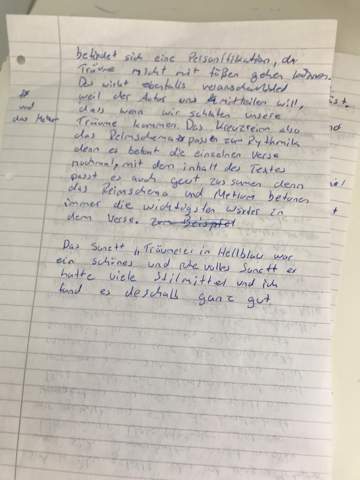 befindet sich eine Personifikation, da
Träume nicht mit füßen gehen können.
Das wirkt ebenfalls veranschaulichend
weil der Autor uns mitteilen will,
dass wenn wir schlafen unsere
und
das Metrum
Träume kommen. Das Kreuzreim also
das Reimschema passen zur Rythmik
denn es betont die einzelnen Verse
nochmal, mit dem inhalt des Textes
passt es auch gut zusamen denn
das Reimschema und Metrum betonen
immer die wichtigsten Wörter in
dem Verse. zum Beispiel
Das Sonett "Träumerei in Hellblau" war
ein schönes und volles Sonett es
hatte viele Stilmittel und ich
fand es deshalb ganz gut